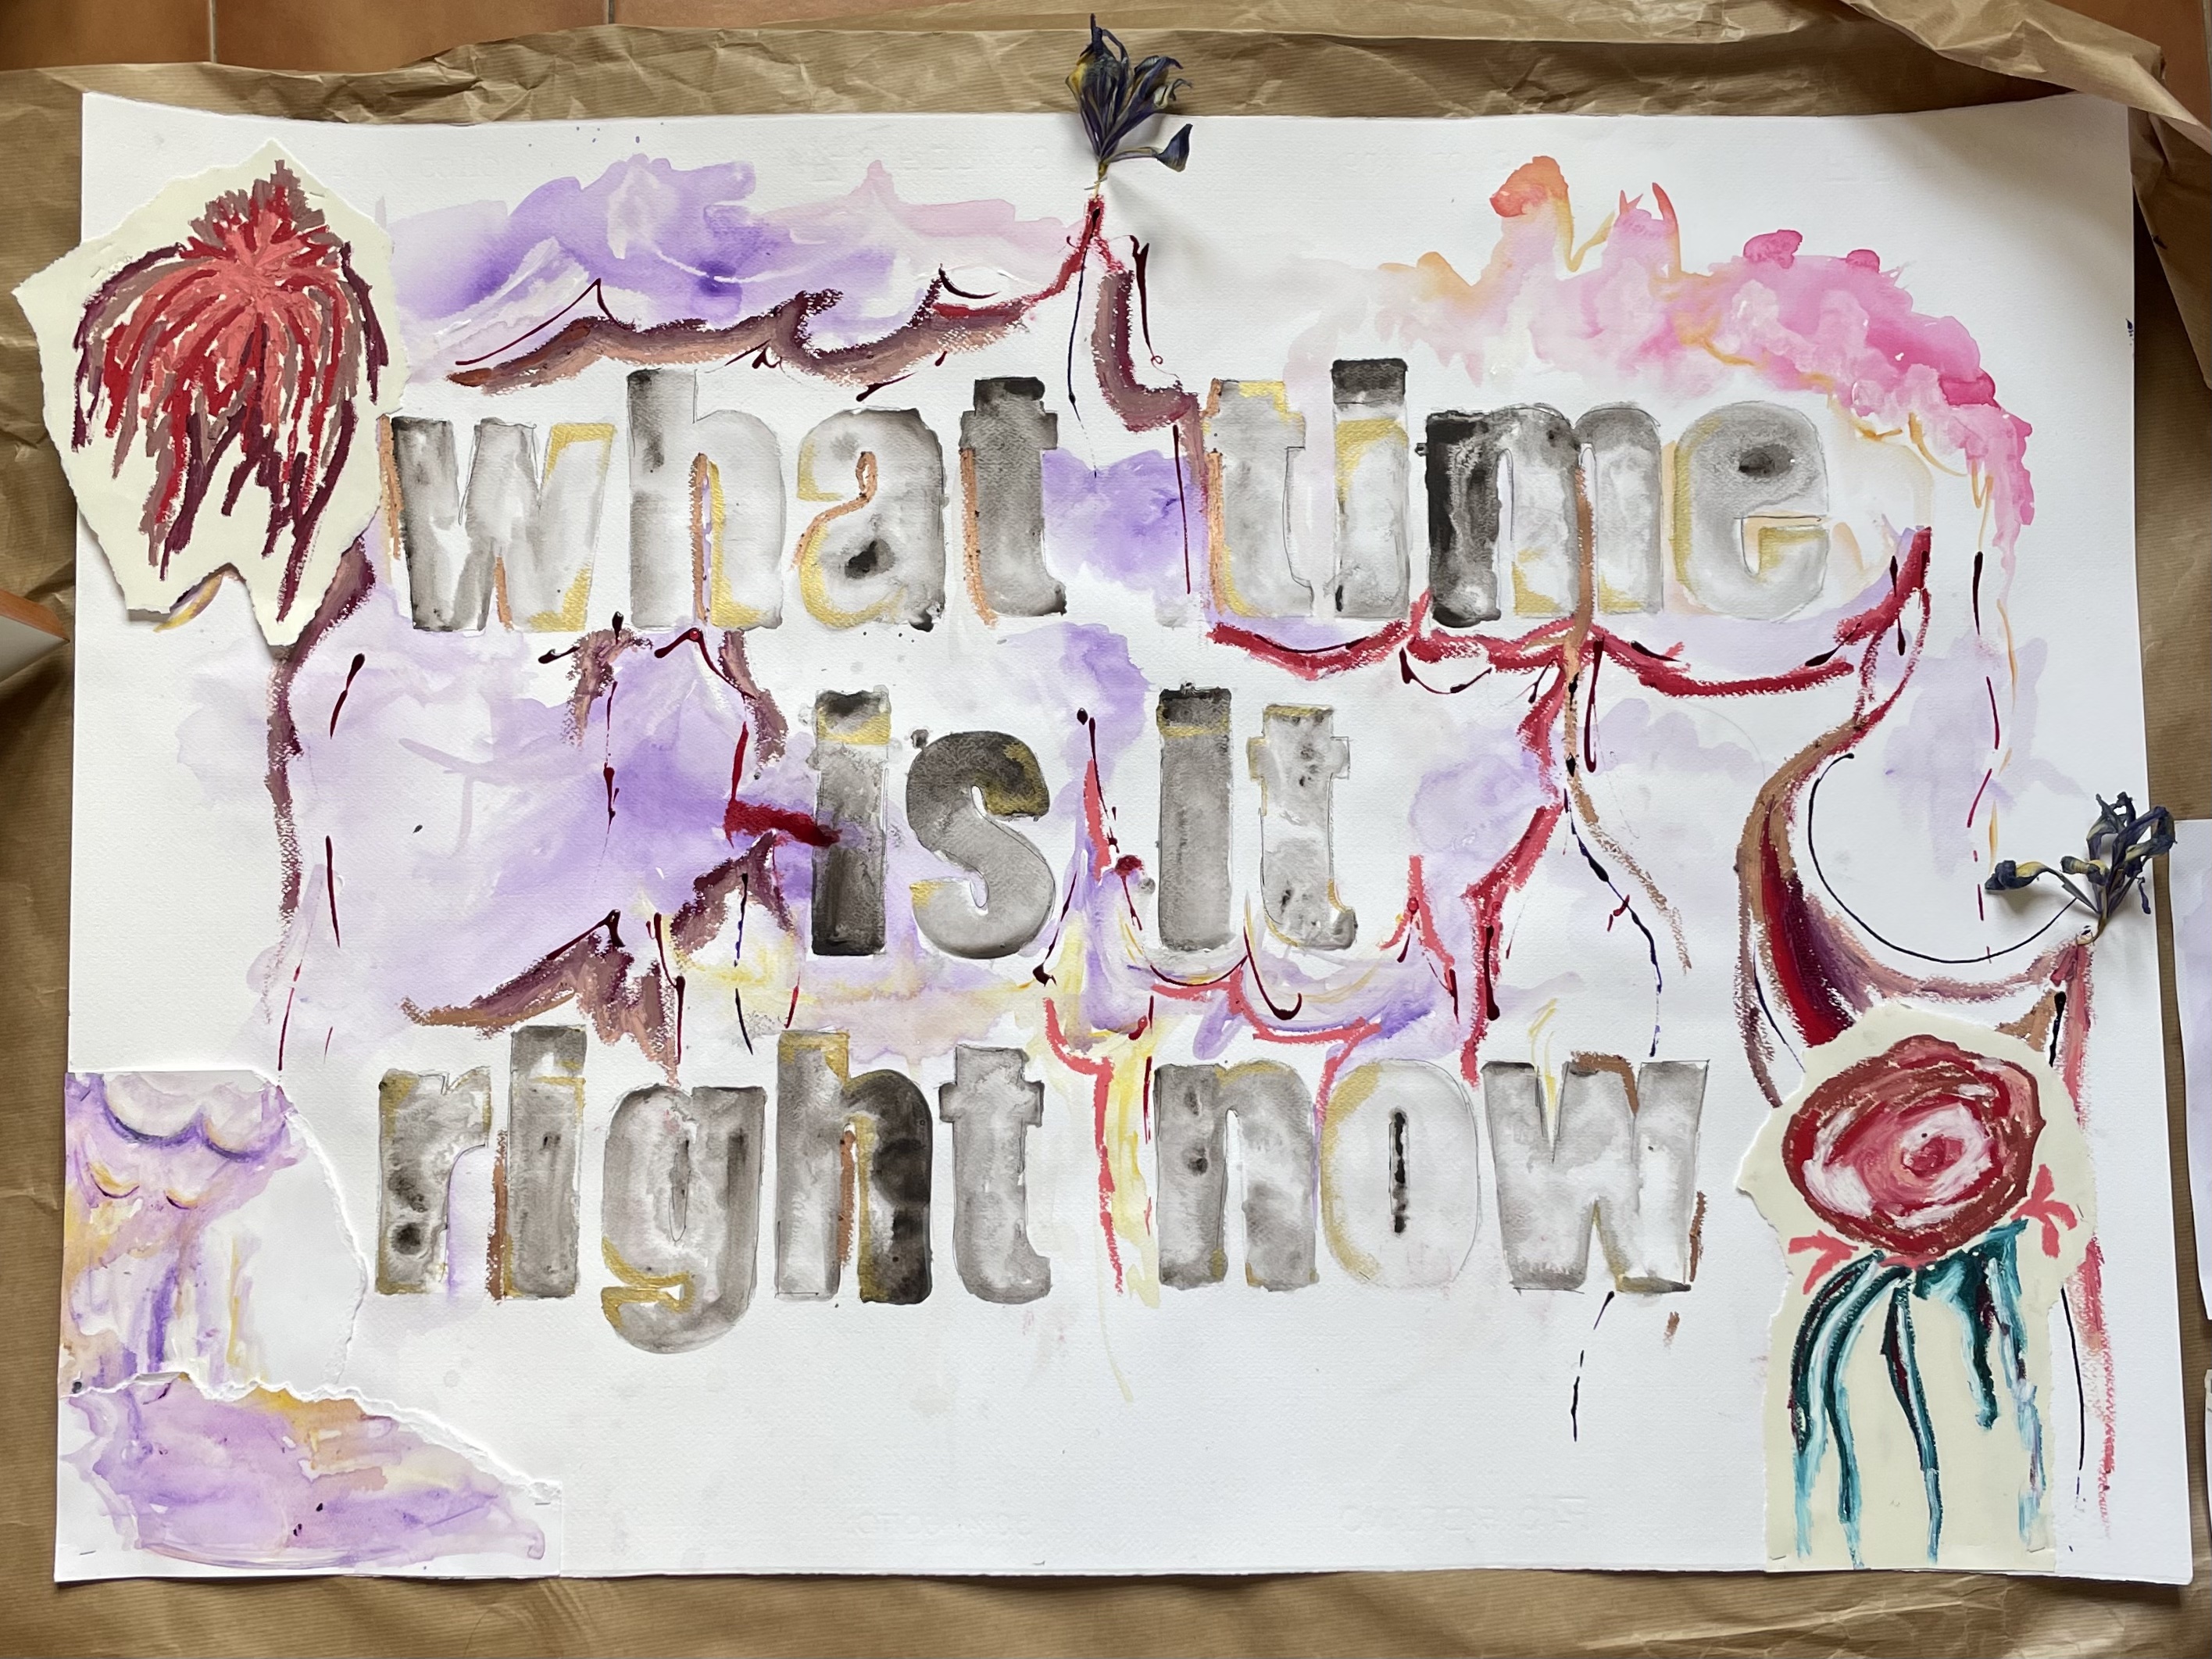 what time
is it
right now